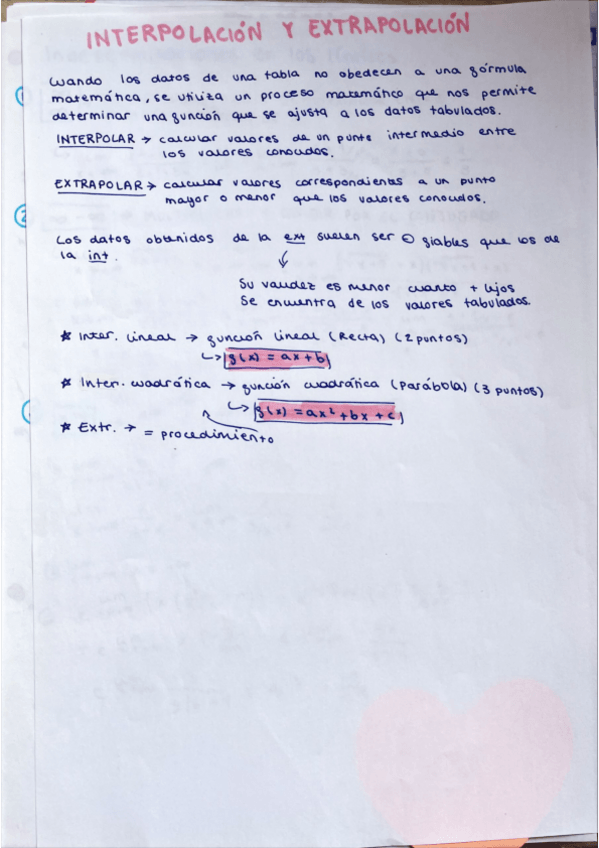 INTERPOLACIÓN Y EXTRAPOLACIÓN
Cuando los datos de una tabla no obedecen a una fórmula
matemática, se utiliza un proceso matemático que nos permite
determinar una función que se ajusta a los datos tabulados.
INTERPOLAR → calcular valores de un punto intermedio entre
los valores conocidos.
EXTRAPOLAR → calcular valores correspondientes a un punto
mayor o menor que los valores conocidos.
Los datos obtenidos de la ext suelen ser ⊖ fiables que los de
la int.
Su validez es menor cuanto + lejos
Se encuentra de los valores tabulados.
* Inter. lineal → función lineal (Recta) (2 puntos)
↳ f(x) = ax + b
* Inter. cuadrática → función cuadrática (Parábola) (3 puntos)
↳ f(x) = ax² + bx + c
* Extr. → = procedimiento